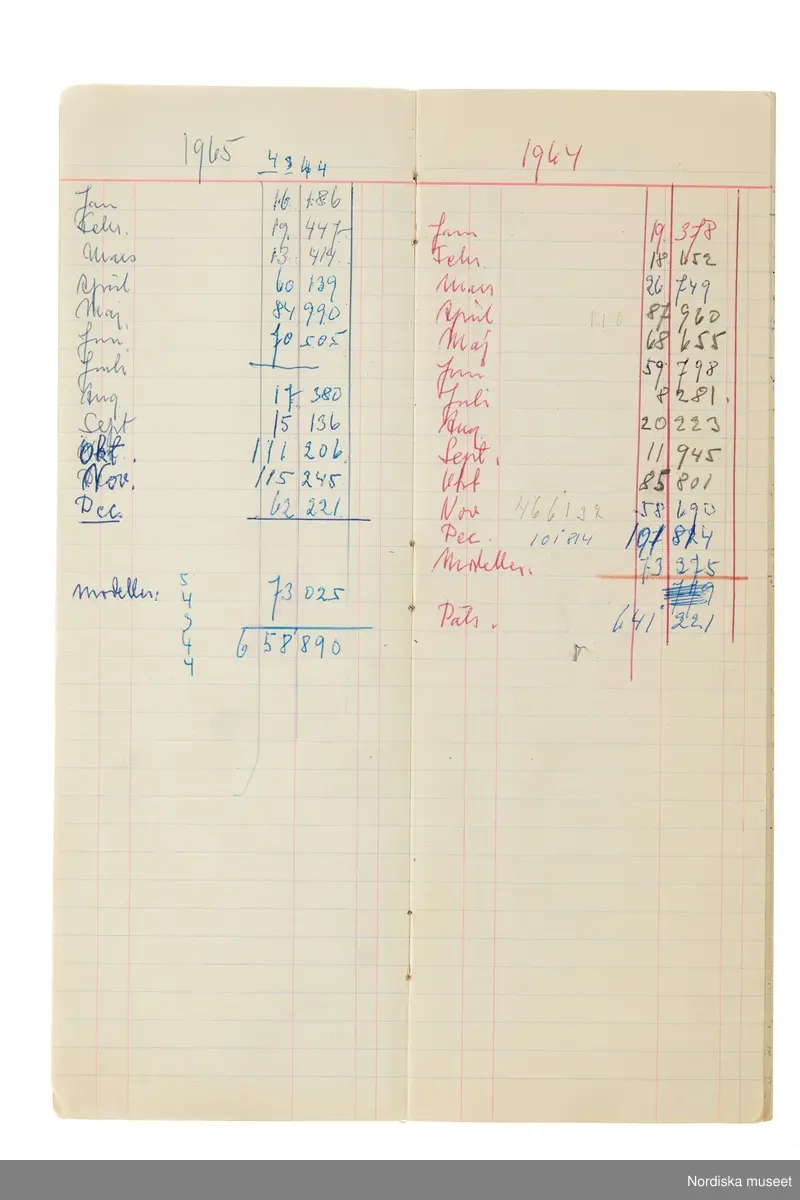 1965
4 3 4 4
Jan 16 186
Febr. 19 447
Mars 13 414
April 60 139
Maj 84 990
Jun 70 505
Juli
Aug 17 380
Sept 15 136
Okt. 111 206.
Nov. 115 245
Dec. 62 221
Modeller: 73 025
5
4
3
4
4
6 58 890
1964
Jan 19 378
Febr. 18 652
Mars 26 749
April 110 87 960
Maj 68 655
Jun 59 798
Juli 8 281.
Aug. 20 223
Sept. 11 945
Okt 85 801
Nov 466132 58 690
Dec. 101814 101 814
Modeller. 73 275
Päls. 641 221
Nordiska museet